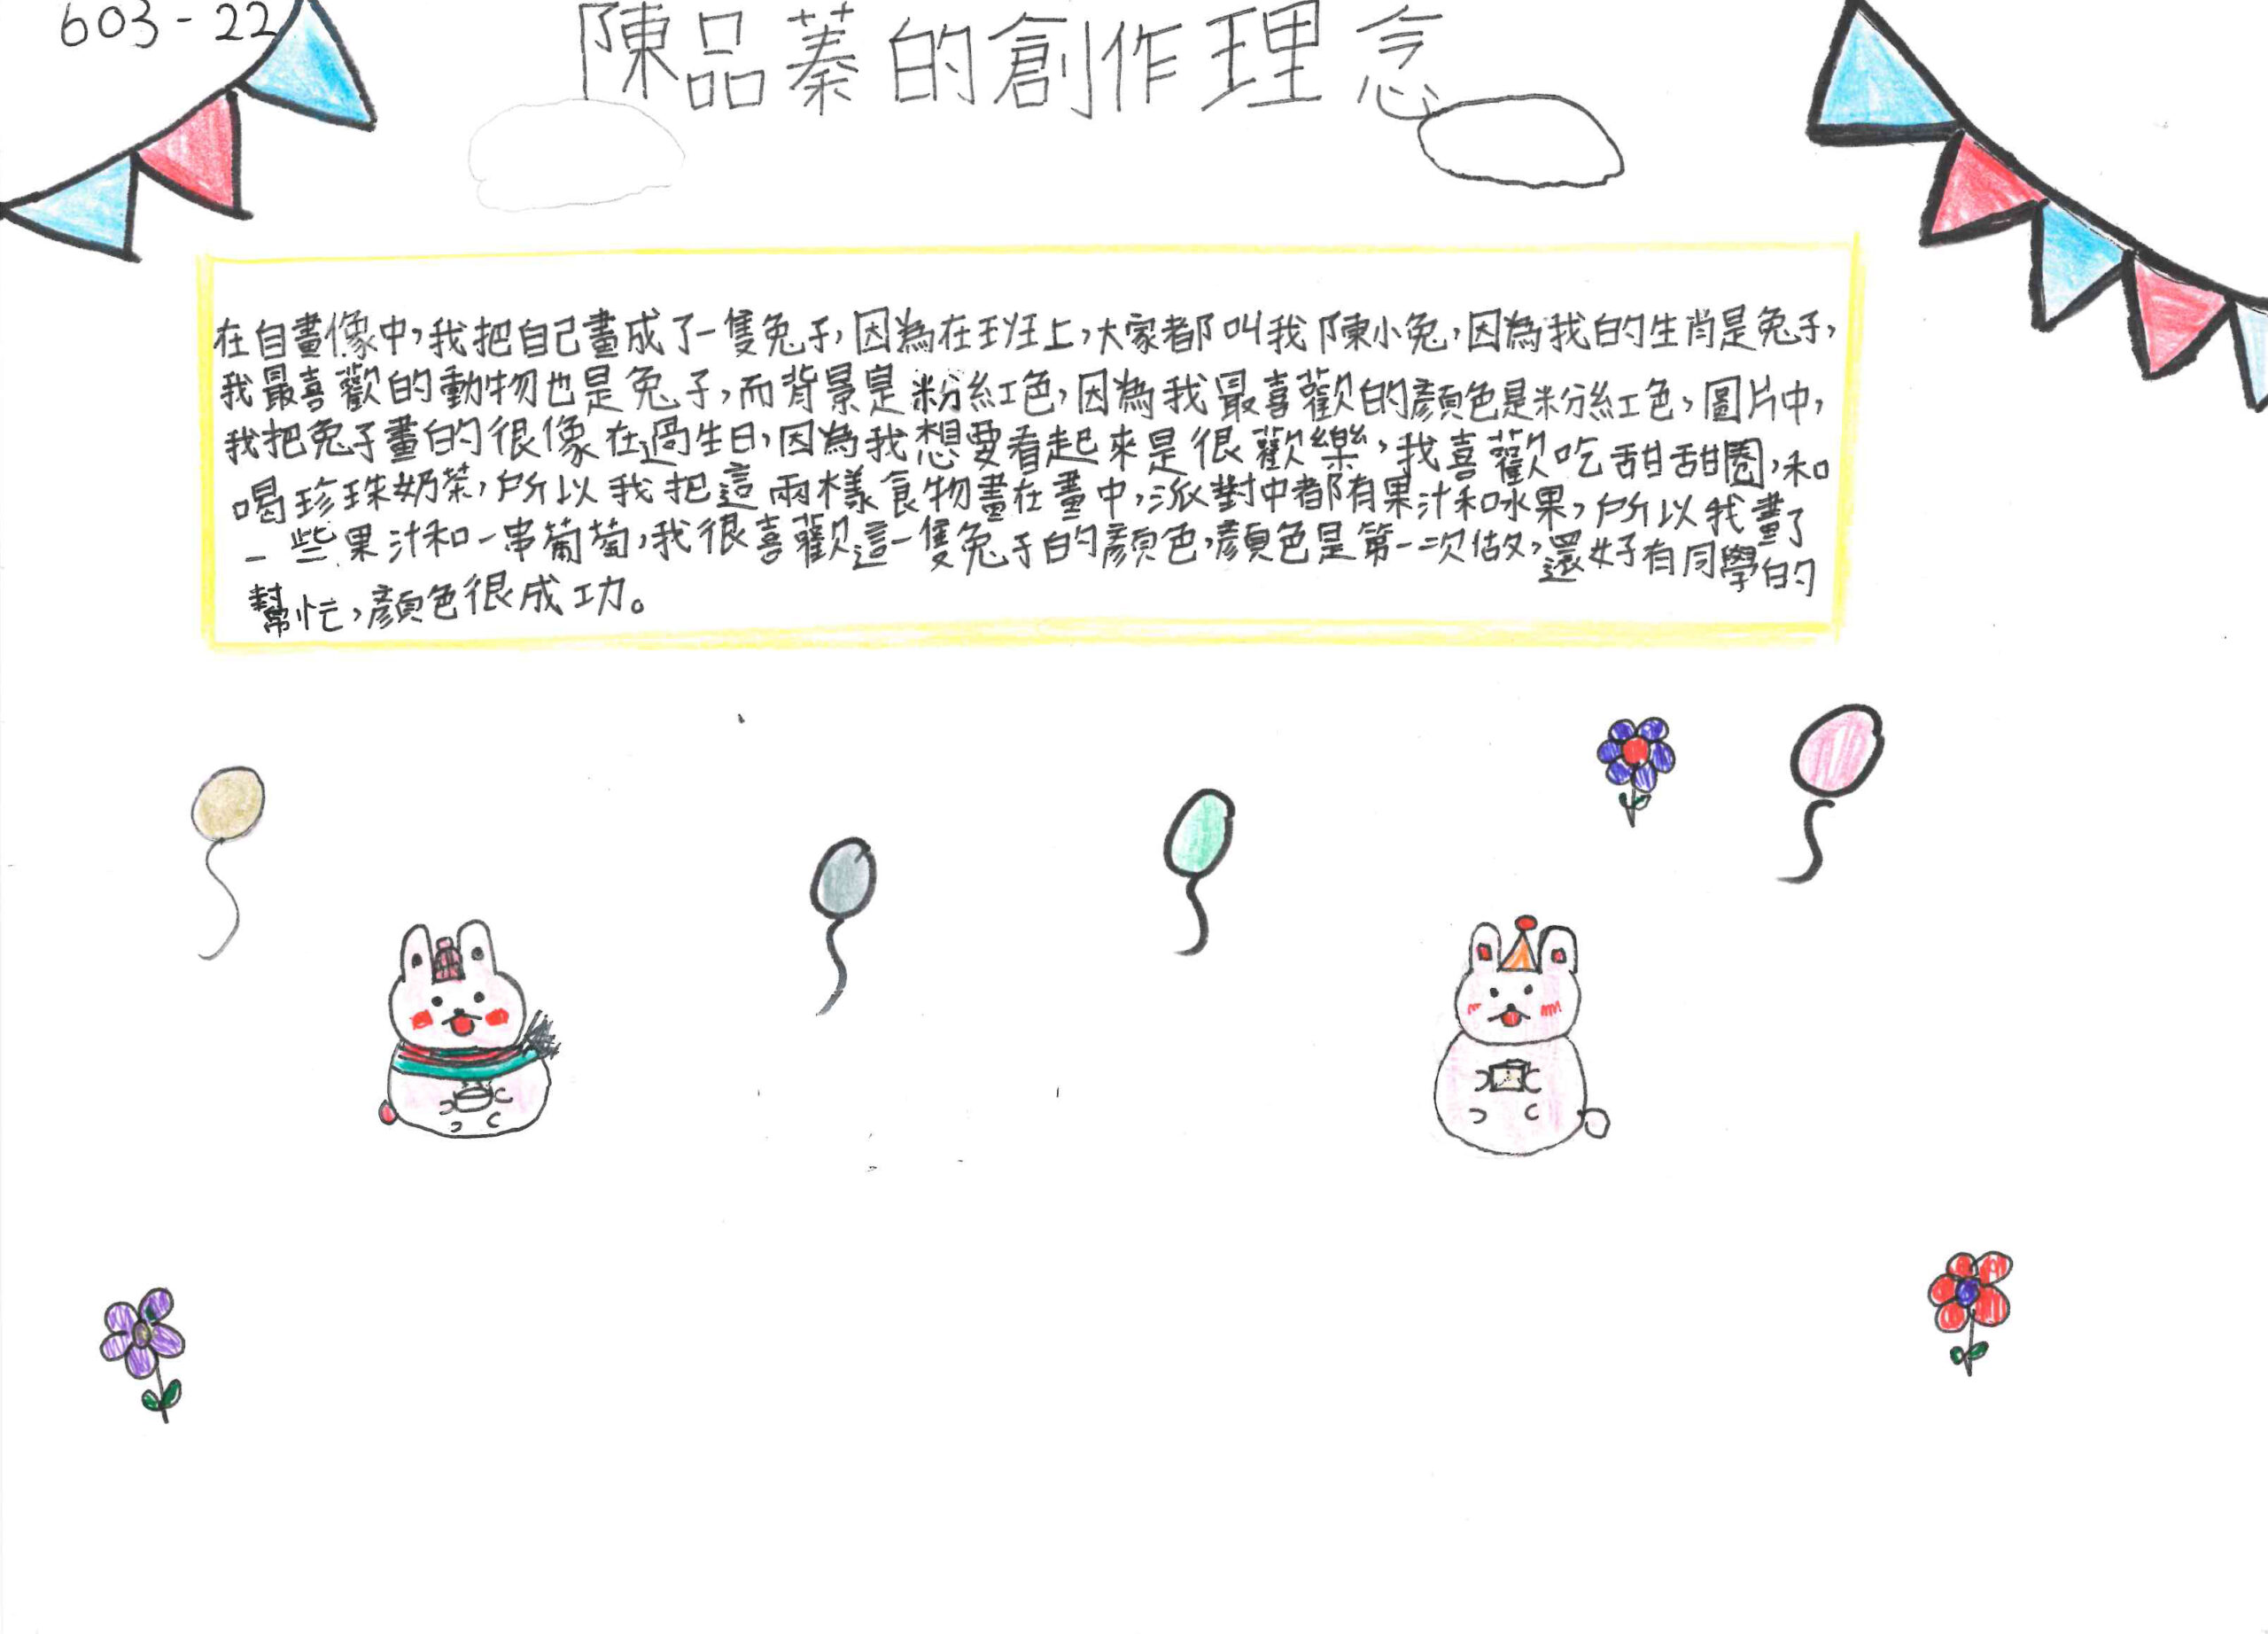 603-22
陳品蓁的創作理念
在自畫像中，我把自己畫成了一隻兔子，因為在班上，大家都叫我陳小兔，因為我的生肖是兔子，
我最喜歡的動物也是兔子，而背景是粉紅色，因為我最喜歡的顏色是粉紅色，圖片中，
我把兔子畫的很像在過生日，因為我想要看起來是很歡樂，我喜歡吃甜甜圈，和
喝珍珠奶茶，所以我把這兩樣食物畫在畫中，派對中都有果汁和水果，所以我畫了
一些果汁和一串葡萄，我很喜歡這一隻兔子的顏色，顏色是第一次做，還好有同學的
幫忙，顏色很成功。